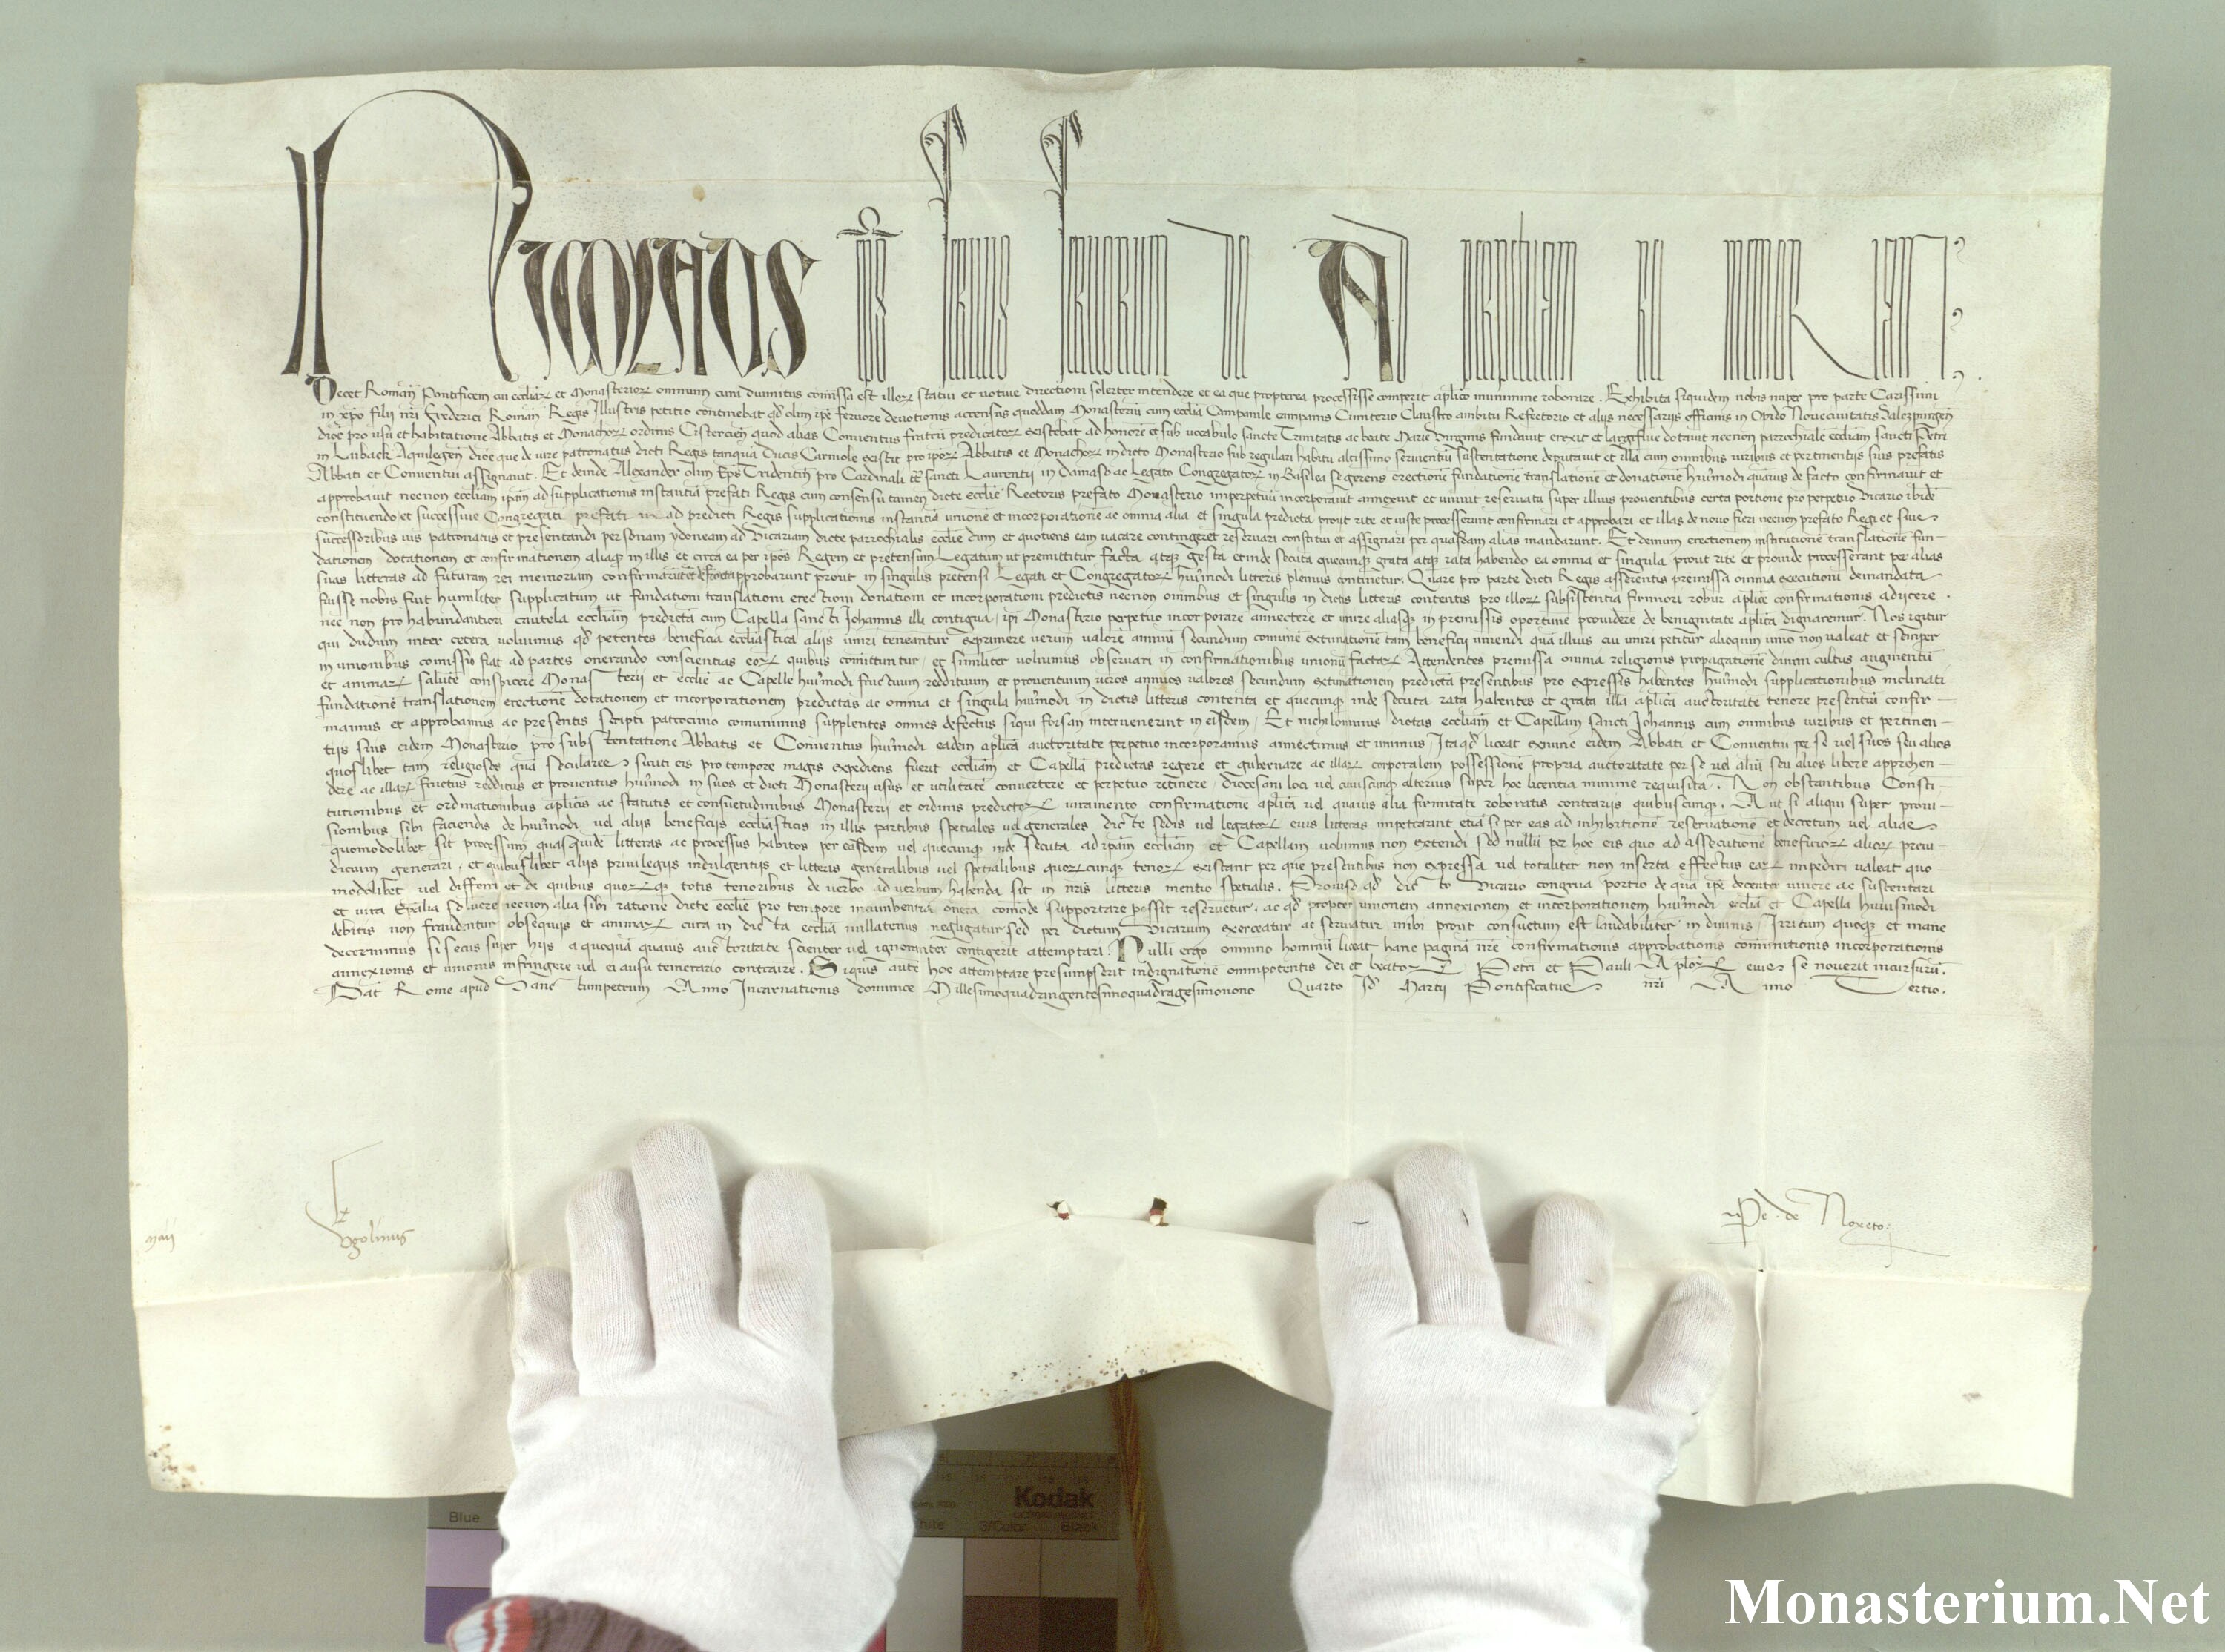 Nicolaus ep̄s seruus seruorum dei Ad perpetuam rei memoriam
Decet Romanū Pontificem cui eccliaꝝ et Monasterioꝝ omnium cura diuinitus comissa est illoꝝ statui et uotiue directioni solerter intendere et ea que propterea processisse comperit aplico munimine roborare. Exhibita siquidem nobis nuper pro parte Carissimi
in xp̄o filij nr̄i Frederici Romanoꝝ Regis Illustris petitio continebat qd̄ olim ip̄e feruore deuotionis accensus quoddam Monasteriū cum ecclia Campanile campanis Cimiterio Claustro ambitu Refectorio et alijs necessarijs officinis in Opido Nouecivitatis Salczpurgen̄
dioc̄ pro usu et habitatione Abbatis et Monachoꝝ ordinis Cistercien̄ quod alias Conuentus fratrū predicatoꝝ existebat ad honorē et sub uocabulo sancte Trinitatis ac beate Marie uirginis fundauit erexit et largiflue dotauit necnon parrochialē eccliam sancti Petri
in Luback Aquilegen̄ dioc̄ que de iure patronatus dicti Regis tanquā Ducis Carniole existit pro ipoꝝ Abbatis et Monachoꝝ in dicto Monasterio sub regulari habitu altissimo seruientiū sustentatione deputauit et illā cum omnibus iuribus et pertinentijs suis prefatis
Abbati et Conuentui assignauit. Et deinde Alexander olim Ep̄s Tridentin̄ pro Cardinali tt̄ sancti Laurentij in Damaso ac Legato Congregatoꝝ in Basilea se gerens erectionē fundationē translationē et donationē huiͫodi quauis de facto confirmauit et
approbauit necnon eccliam ipām ad supplicationis instantiā prefati Regis cum consensu tamen dicte ecclie Rectoris prefato Monasterio imperpetuū incorporauit annexuit et univit reseruata super illius prouentibus certa portione pro perpetuo vicario ibidē
constituendo et successiue Congregati prefati ad predicti Regis supplicationis instantiā unionē et incorporationē ac omnia alia et singula predicta prout rite et iuste processerunt confirmari et approbari et illas de nouo fieri necnon prefato Regi et suis
successoribus ius patronatus et presentandi personam ydoneam ad Vicariam dicte parrochialis ecclie dum et quotiens eam uacare contingeret reseruari constitui et assignari per quasdam alias mandarunt. Et demum erectionem institutionē translationē fun-
dationem dotationem et confirmationem aliaqꝫ in illis et circa ea per ipos Regem et pretensum Legatum ut premittitur facta atqꝫ gesta et inde secuta quecunqꝫ grata atqꝫ rata habendo ea omnia et singula prout rite et prouide processerant per alias
suas litteras ad futuram rei memoriam confirmarunt et approbarunt prout in singulis pretensi Legati et Congregatoꝝ huiͫodi litteris plenius continetur. Quare pro parte dicti Regis asserentis premissa omnia executioni demandata
fuisse nobis fuit humiliter supplicatum ut fundationi translationi erectioni donationi et incorporationi predictis necnon omnibus et singulis in dictis litteris contentis pro illoꝝ subsistentia firmiori robur aplice confirmationis adijcere.
nec non pro habundantiori cautela eccliam predictā cum Capella sancti Johannis illi contigua, ipi Monasterio perpetuo incorporare annectere et unire aliasqꝫ in premissis oportune prouidere de benignitate aplica dignaremur. Nos igitur
qui dudum inter cetera uoluimus qd̄ petentes beneficia eccliastica alijs uniri tenerentur exprimere uerum ualorē annuū secundum comunē extimationē tam beneficij uniendi quā illius cui uniri petitur alioquin unio non ualeat et semper
in unionibus comissio fiat ad partes onerando conscientias eoꝝ quibus comittuntur, et similiter uoluimus obseruari in confirmationibus unionū factaꝝ Attendentes premissa omnia religionis propagationē diuini cultus augmentū
et animaꝝ salutē conspicere Monasterij et ecclie ac Capelle huiͫodi fructuum reddituum et prouentuum ueros annuos ualores secundum extimationem predictā presentibus pro expressis habentes huiͫodi supplicationibus inclinati
fundationē translationem erectionē dotationem et incorporationem predictas ac omnia et singula huiͫodi in dictis litteris contenta et quecunqꝫ inde secuta rata habentes et grata illa aplica auctoritate tenore presentiū confir-
mamus et approbamus ac presentis scripti patrocinio comunimus supplentes omnes defectus siqui forsan interuenerint in eisdem, Et nichilominus dictas eccliam et Capellam sancti Johannis cum omnibus iuribus et pertinen-
tijs suis eidem Monasterio pro substentatione Abbatis et Conuentus huiͫodi eadem aplica auctoritate perpetuo incorporamus annectimus et unimus, Itaqd̄ liceat exnunc eidem Abbati et Conuentui per se uel suos seu alios
quoslibet tam religiosos quā seculares sicuti eis pro tempore magis expediens fuerit eccliam et Capellā predictas regere et gubernare ac illaꝝ corporalem possessionē propria auctoritate per se uel aliū seu alios libere apprehen-
dere ac illaꝝ fructus redditus et prouentus huiͫodi in suos et dicti Monasterij usus et utilitatē conuertere et perpetuo retinere, diocesani loci uel cuiuscunqꝫ alterius super hoc licentia minime requisita. Non obstantibus Consti-
tutionibus et ordinationibus aplicis ac statutis et consuetudinibus Monasterij et ordinis predictoꝝ iuramento confirmatione aplica uel quauis alia firmitate roboratis contrarijs quibuscunqꝫ. Aut si aliqui super proui-
sionibus sibi faciendis de huiͫodi uel alijs beneficijs eccliasticis in illis partibus speciales uel generales dicte sedis uel legatoꝝ eius litteras impetrarint etiā si per eas ad inhibitionē reseruationē et decretum uel alias
quomodolibet sit processum quasquidē litteras ac processus habitos per easdem uel quecunqꝫ inde secuta ad ipām eccliam et Capellam uolumus non extendi sed nullū per hoc eis quo ad assecutionē beneficioꝝ alioꝝ preiu-
dicium generari. et quibuslibet alijs priuilegijs indulgentijs et litteris generalibus uel specialibus quoꝝcunqꝫ tenoꝝ existant per que presentibus non expressa uel totaliter non inserta effectus eaꝝ impediri ualeat quo-
modolibet uel differri et de quibus quoꝝqꝫ totis tenoribus de uerbo ad uerbum habenda sit in nr̄is litteris mentio specialis. Prouiso qd̄ dicto Vicario congrua portio de qua ip̄e decenter uiuere ac sustentari
et iura Ep̄alia soluere necnon alia sibi ratione dicte ecclie pro tempore incumbentia onera comode supportare possit reseruetur. ac qd̄ propter unionem annexionem et incorporationem huiͫodi ecclia et Capella huiusmodi
debitis non fraudentur obsequijs et animaꝝ cura in dicta ecclia nullatenus negligatur sed per dictum Vicarium exerceatur ac seruiatur inibi prout consuetum est laudabiliter in diuinis, Irritum quoqꝫ et inane
decernimus si secus super hijs a quoquā quauis auctoritate scienter uel ignoranter contigerit attemptari. Nulli ergo omnino hominū liceat hanc paginā nr̄e confirmationis approbationis comunitionis incorporationis
annexionis et unionis infringere uel ei ausu temerario contraire. Siquis autē hoc attemptare presumpserit indignationē omnipotentis dei et beatoꝝ Petri et Pauli Aploꝝ eius se nouerit incursurū.
Dat̄ Rome apud Sanctumpetrum Anno Incarnationis dominice Millesimoquadringentesimoquadragesimonono Quarto Id̄ Martij Pontificatus nr̄i Anno Tertio.
Vgolinus
Pe. de Noxeto
Blue
Kodak
White 3/Color Black
Monasterium.Net